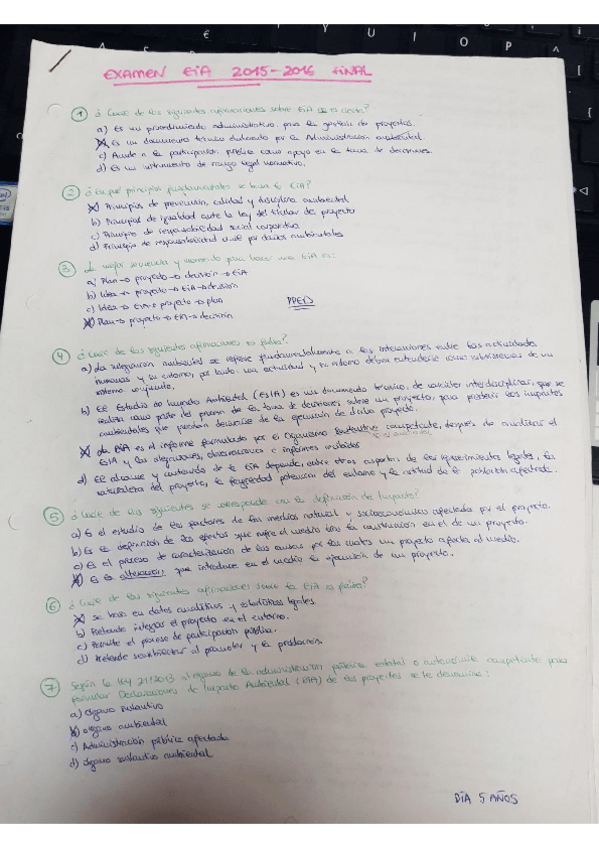 EXAMEN EIA 2015-2016 FINAL
1 ¿Cuál de las siguientes afirmaciones sobre EIA es cierta?
a) Es un procedimiento administrativo para la gestión de proyectos.
b) Es un documento técnico elaborado por la Administración ambiental.
c) Acude a la participación pública como apoyo en la toma de decisiones.
d) Es un instrumento de rango legal normativo.
2 ¿En qué principios fundamentales se basa la EIA?
a) Principios de prevención, calidad y disciplina ambiental
b) Principios de igualdad ante la ley del titular del proyecto
c) Principio de responsabilidad social corporativa
d) Principio de responsabilidad civil por daños ambientales
3 La mejor secuencia y momento para hacer una EIA es:
a) Plan → proyecto → decisión → EIA
b) Idea → proyecto → EIA → decisión
c) Idea → EIA → proyecto → plan
PPEID
d) Plan → proyecto → EIA → decisión
4 ¿Cuál de las siguientes afirmaciones es falsa?
a) La integración ambiental se refiere fundamentalmente a las interacciones entre las actividades
humanas y su entorno, por tanto una actividad y su entorno deben entenderse como subsistemas de un
sistema conjunto.
b) El Estudio de Impacto Ambiental (EsIA) es un documento técnico, de carácter interdisciplinar, que se
realiza como parte del proceso de la toma de decisiones sobre un proyecto, para predecir los impactos
ambientales que pueden derivarse de la ejecución de dicho proyecto.
c) La DIA es el informe formulado por el Organismo sustantivo competente, después de analizar el
EsIA y las alegaciones, observaciones e informes recibidos
d) El alcance y contenido de la EIA depende, entre otros aspectos, de los requerimientos legales, la
naturaleza del proyecto, la fragilidad potencial del entorno y la actitud de la población afectada.
5 ¿Cuál de las siguientes se corresponde con la definición de Impacto?
a) Es el estudio de los factores de los medios natural y socioeconómico afectados por el proyecto.
b) Es la definición de los efectos que sufre el medio tras la construcción en él de un proyecto.
c) Es el proceso de caracterización de las causas por las cuales un proyecto afecta al medio.
d) Es la alteración que introduce en el medio la ejecución de un proyecto.
6 ¿Cuál de las siguientes afirmaciones sobre la EIA es falsa?
a) Se basa en datos analíticos y estadísticas legales.
b) Pretende integrar el proyecto en el entorno.
c) Permite el proceso de participación pública.
d) Pretende al promotor y la población.
7 Según la Ley 21/2013 al órgano de la administración pública estatal o autonómica competente para
formular Declaraciones de Impacto Ambiental (DIA) de los proyectos se le denomina:
a) Órgano sustantivo
b) Órgano ambiental
c) Administración pública afectada
d) Órgano sustantivo ambiental
DIA 5 AÑOS